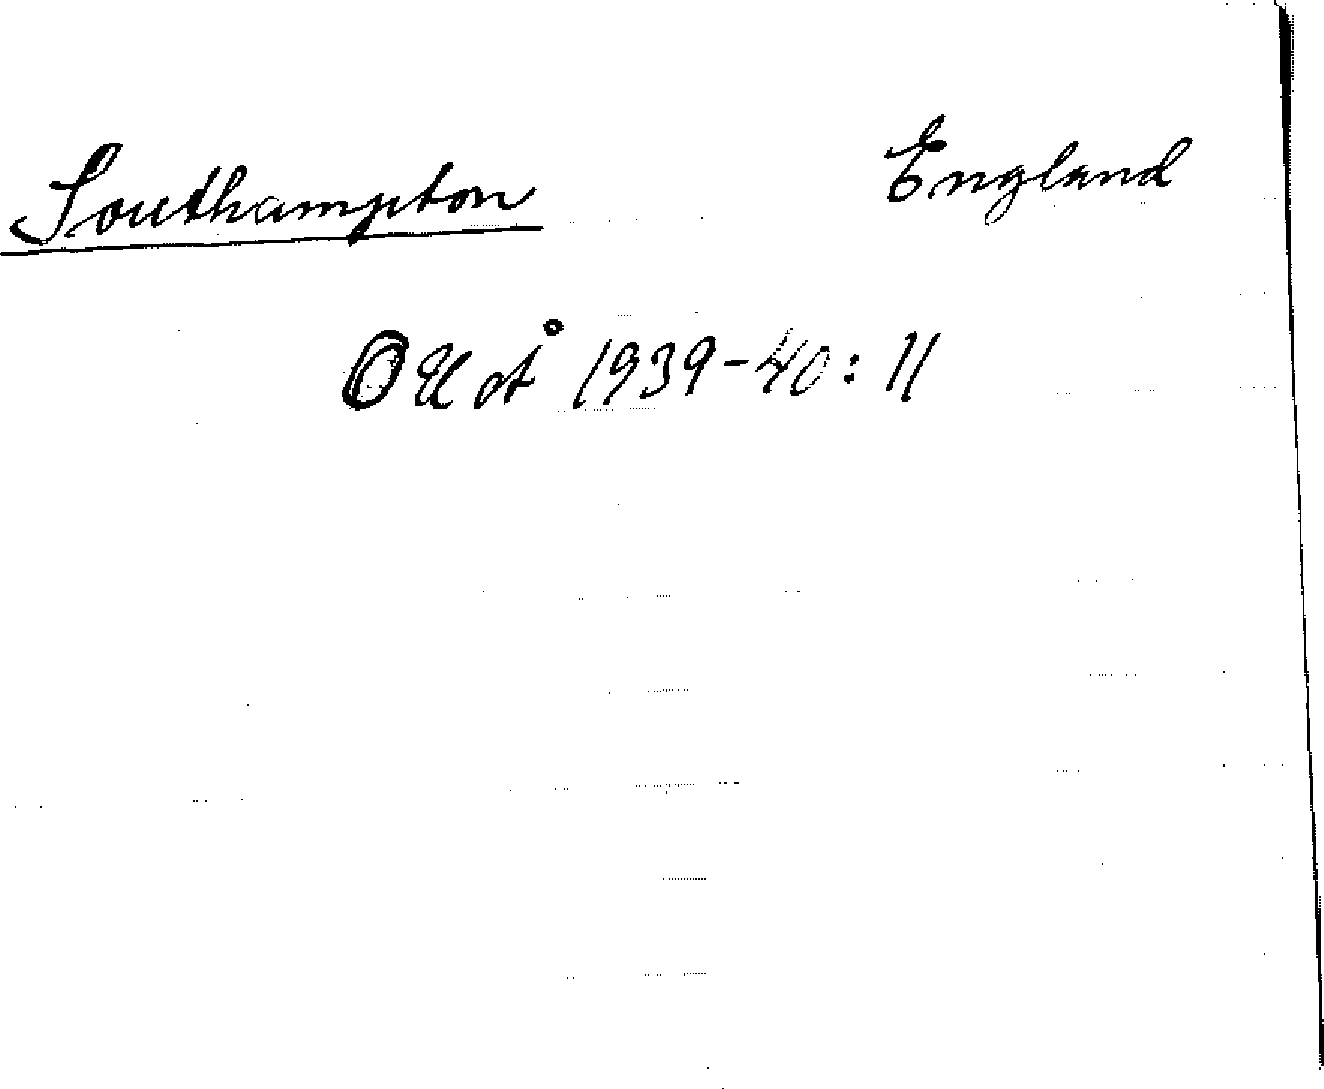 Southampton England
OUÅ 1939-40: 11